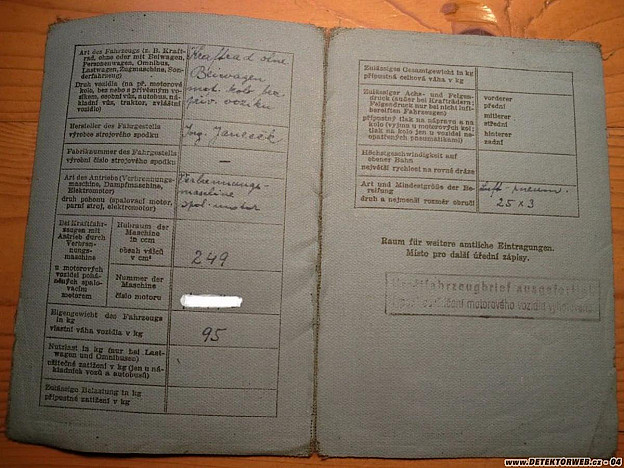 Art des Fahrzeugs (z. B. Kraft-
rad, ohne oder mit Beiwagen,
Personenwagen, Omnibus,
Lastwagen, Zugmaschine, Son-
derfahrzeug)
Druh vozidla (na př. motorové
kolo, bez nebo s přívěsným vo-
zíkem, osobní vůz, autobus, ná-
kladní vůz, traktor, zvláštní
vozidlo)
Kraftrad ohne
Beiwagen
mot. kolo bez
přív. vozíku
Hersteller des Fahrgestells
výrobce strojového spodku
Ing. Janeček
Fabriknummer des Fahrgestells
výrobní číslo strojového spodku
—
Art des Antriebs (Verbrennungs-
maschine, Dampfmaschine,
Elektromotor)
druh pohonu (spalovací motor,
parní stroj, elektromotor)
Verbrennungs-
maschine
spal. motor
Bei Kraftfahr-
zeugen mit
Antrieb durch
Verbren-
nungs-
maschine
u motorových
vozidel pohá-
něných spalo-
vacím
motorem
Hubraum der
Maschine
in ccm
obsah válců
v cm³
249
Nummer der
Maschine
číslo motoru
Eigengewicht des Fahrzeugs
in kg
vlastní váha vozidla v kg
95
Nutzlast in kg (nur bei Last-
wagen und Omnibussen)
užitečné zatížení v kg (jen u ná-
kladních vozů a autobusů)
Zulässige Belastung in kg
přípustné zatížení v kg
Zulässiges Gesamtgewicht in kg
přípustná celková váha v kg
Zulässiger Achs- und Felgen-
druck (außer bei Krafträdern;
Felgendruck nur bei nicht luft-
bereiften Fahrzeugen)
přípustný tlak na nápravu a na
kolo (vyjma u motorových kol;
tlak na kolo jen u vozidel ne-
opatřených pneumatikami)
vorderer
přední
mittlerer
střední
hinterer
zadní
Höchstgeschwindigkeit auf
ebener Bahn
největší rychlost na rovné dráze
Art und Mindestgröße der Be-
reifung
druh a nejmenší rozměr obručí
Luft - pneum.
25 x 3
Raum für weitere amtliche Eintragungen.
Místo pro další úřední zápisy.
Kraftfahrzeugbrief ausgefertigt
motorového vozidla
www.DETEKTORWEB.cz - 04